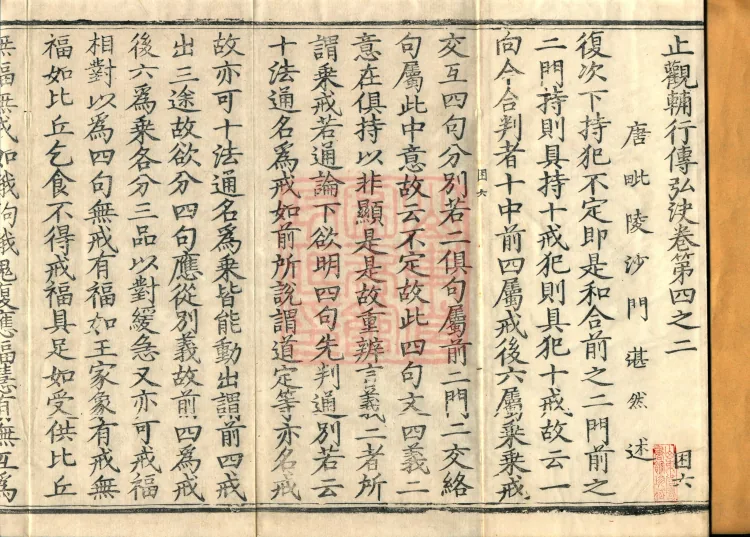 止觀輔行傳弘決卷第四之二
困六
唐毗陵沙門湛然述
復次下持犯不定即是和合前之二門前之
二門持則具持十戒犯則具犯十戒故云一
向今合判者十中前四屬戒後六屬乘乘戒
困六
交互四句分別若二俱句屬前二門二交絡
句屬此中意故云不定故此四句文四義二
意在俱持以非顯是是故重辨言義二者所
謂乘戒若通論下欲明四句先判通別若云
十法通名爲戒如前所說謂道定等亦名戒
故亦可十法通名爲乘皆能動出謂前四戒
出三途故欲分四句應從別義故前四爲戒
後六爲乘各分三品以對緩急又亦可戒福
相對以爲四句無戒有福如王家象有戒無
福如比丘乞食不得戒福具足如受供比丘
無福無戒如餓狗餓鬼復應福慧有無互爲